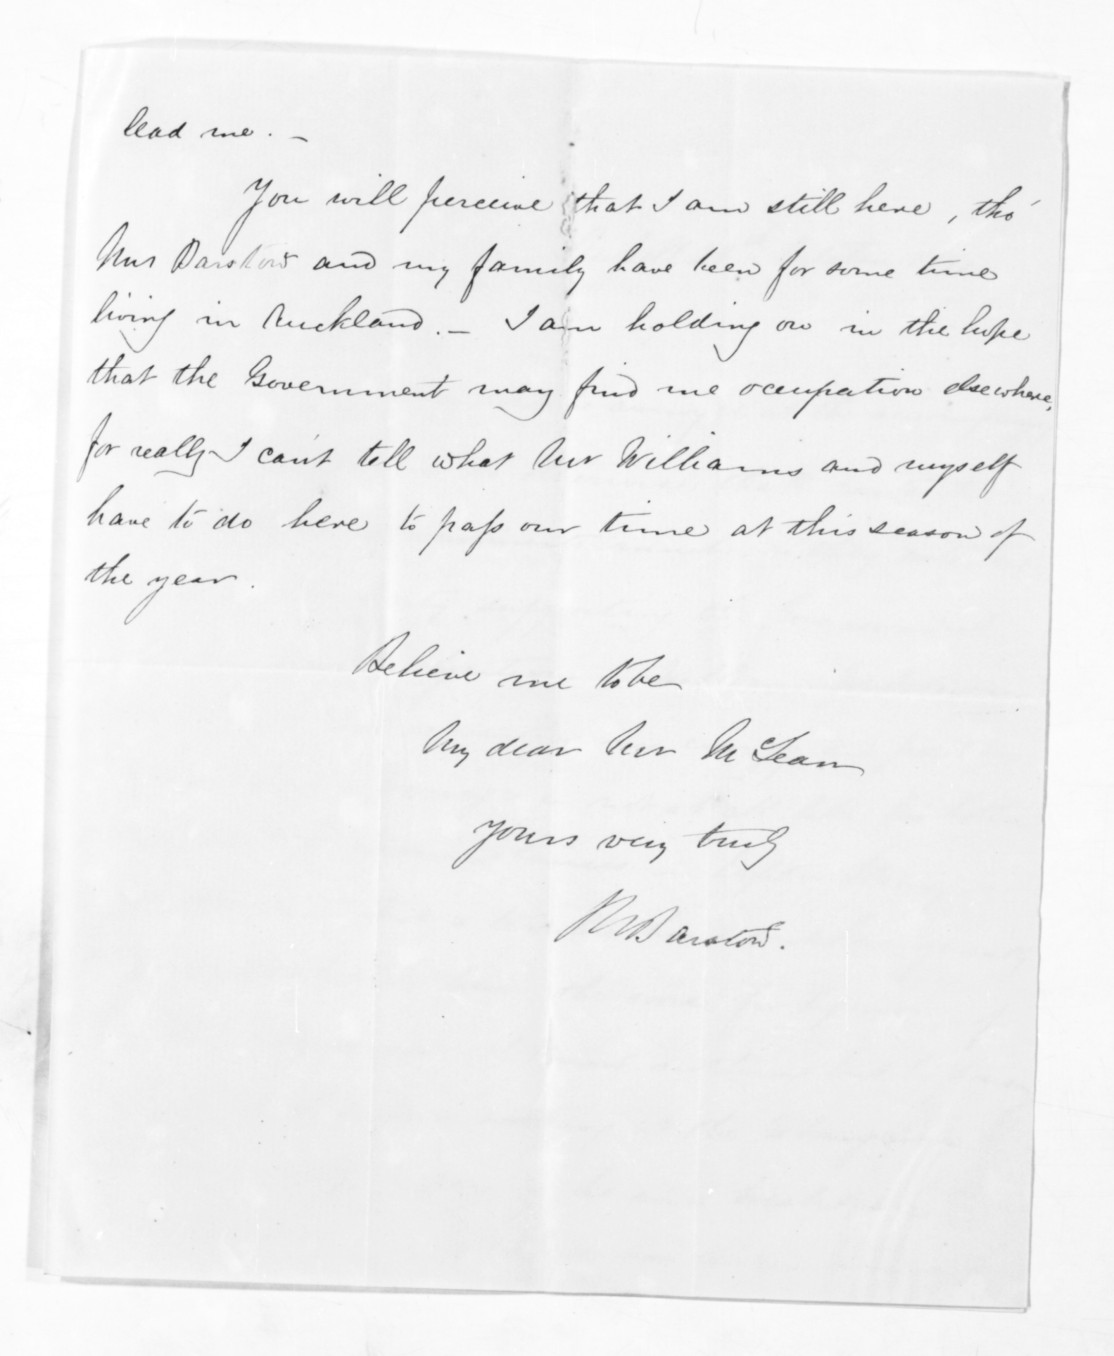 lead me. —
You will perceive that I am still here, tho'
Mrs Barstow and my family have been for some time
living in Auckland. — I am holding on in the hope
that the Government may find me occupation elsewhere,
for really I can't tell what Mr Williams and myself
have to do here to pass our time at this season of
the year.
Believe me to be
My dear Mr McLean
Yours very truly
R C Barstow.